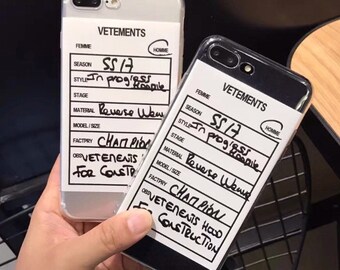 VETEMENTS
FEMME
HOMME
SEASON SS17
STYLE In progress Hoodie
STAGE
MATERIAL Reverse Weave
MODEL / SIZE
FACTPRY CHAMPION
OBS VETEMENTS HOOD
FOR CONSTRUCTION
VETEMENTS
FEMME
HOMME
SEASON SS17
STYLE In progress Hoodie
STAGE
MATERIAL Reverse Weave
MODEL / SIZE
FACTPRY CHAMPION
OBS VETEMENTS HOOD
FOR CONSTRUCTION